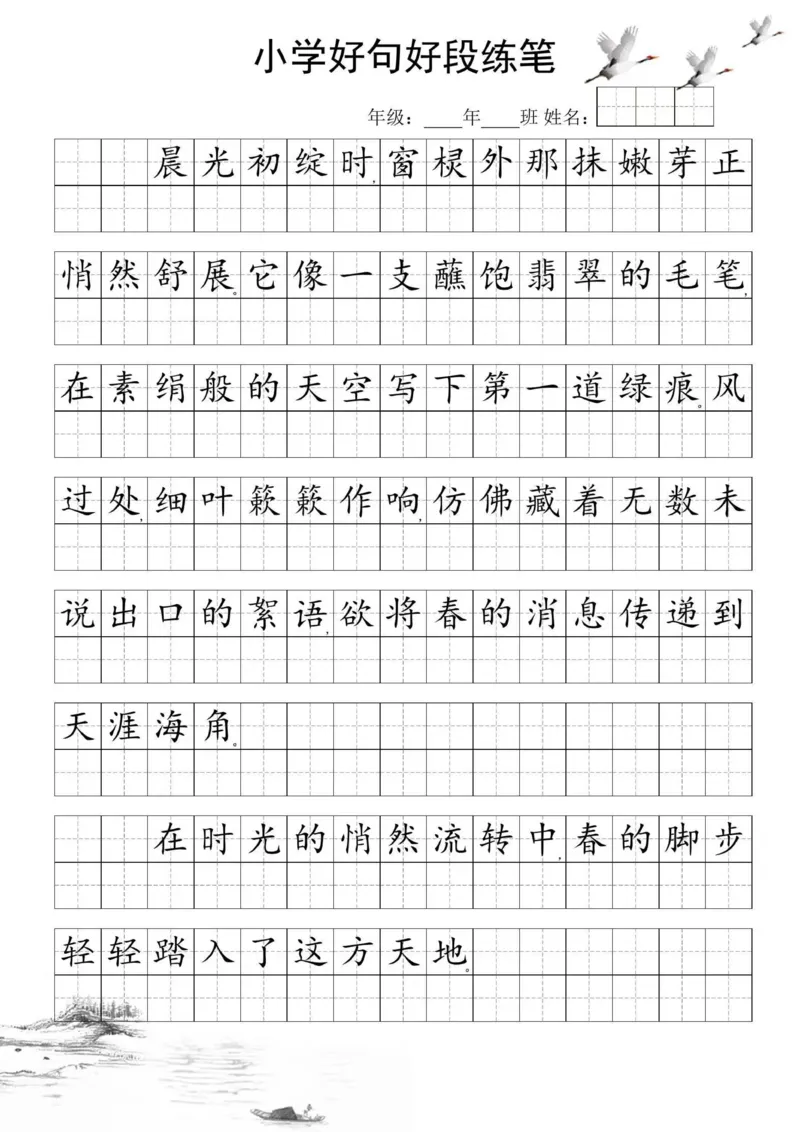 小学好句好段练笔
年级：____年____班 姓名：
晨光初绽时，窗棂外那抹嫩芽正
悄然舒展。它像一支蘸饱翡翠的毛笔，
在素绢般的天空写下第一道绿痕。风
过处，细叶簌簌作响，仿佛藏着无数未
说出口的絮语，欲将春的消息传递到
天涯海角。
在时光的悄然流转中，春的脚步
轻轻踏入了这方天地。